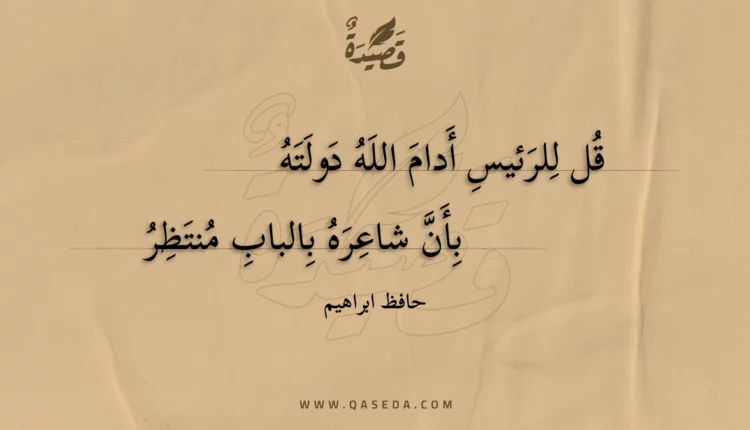 قَصِيدَةٌ
قُل لِلرَئيسِ أَدامَ اللَهُ دَولَتَهُ
بِأَنَّ شاعِرَهُ بِالبابِ مُنتَظِرُ
حافظ ابراهيم
WWW.QASEDA.COM